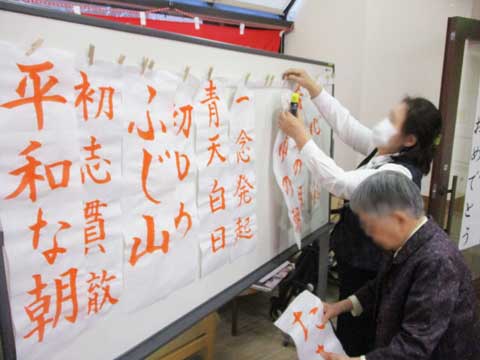 おめでとう
一念発起
青天白日
初日の
ふじ山
初志貫徹
平和な朝
た